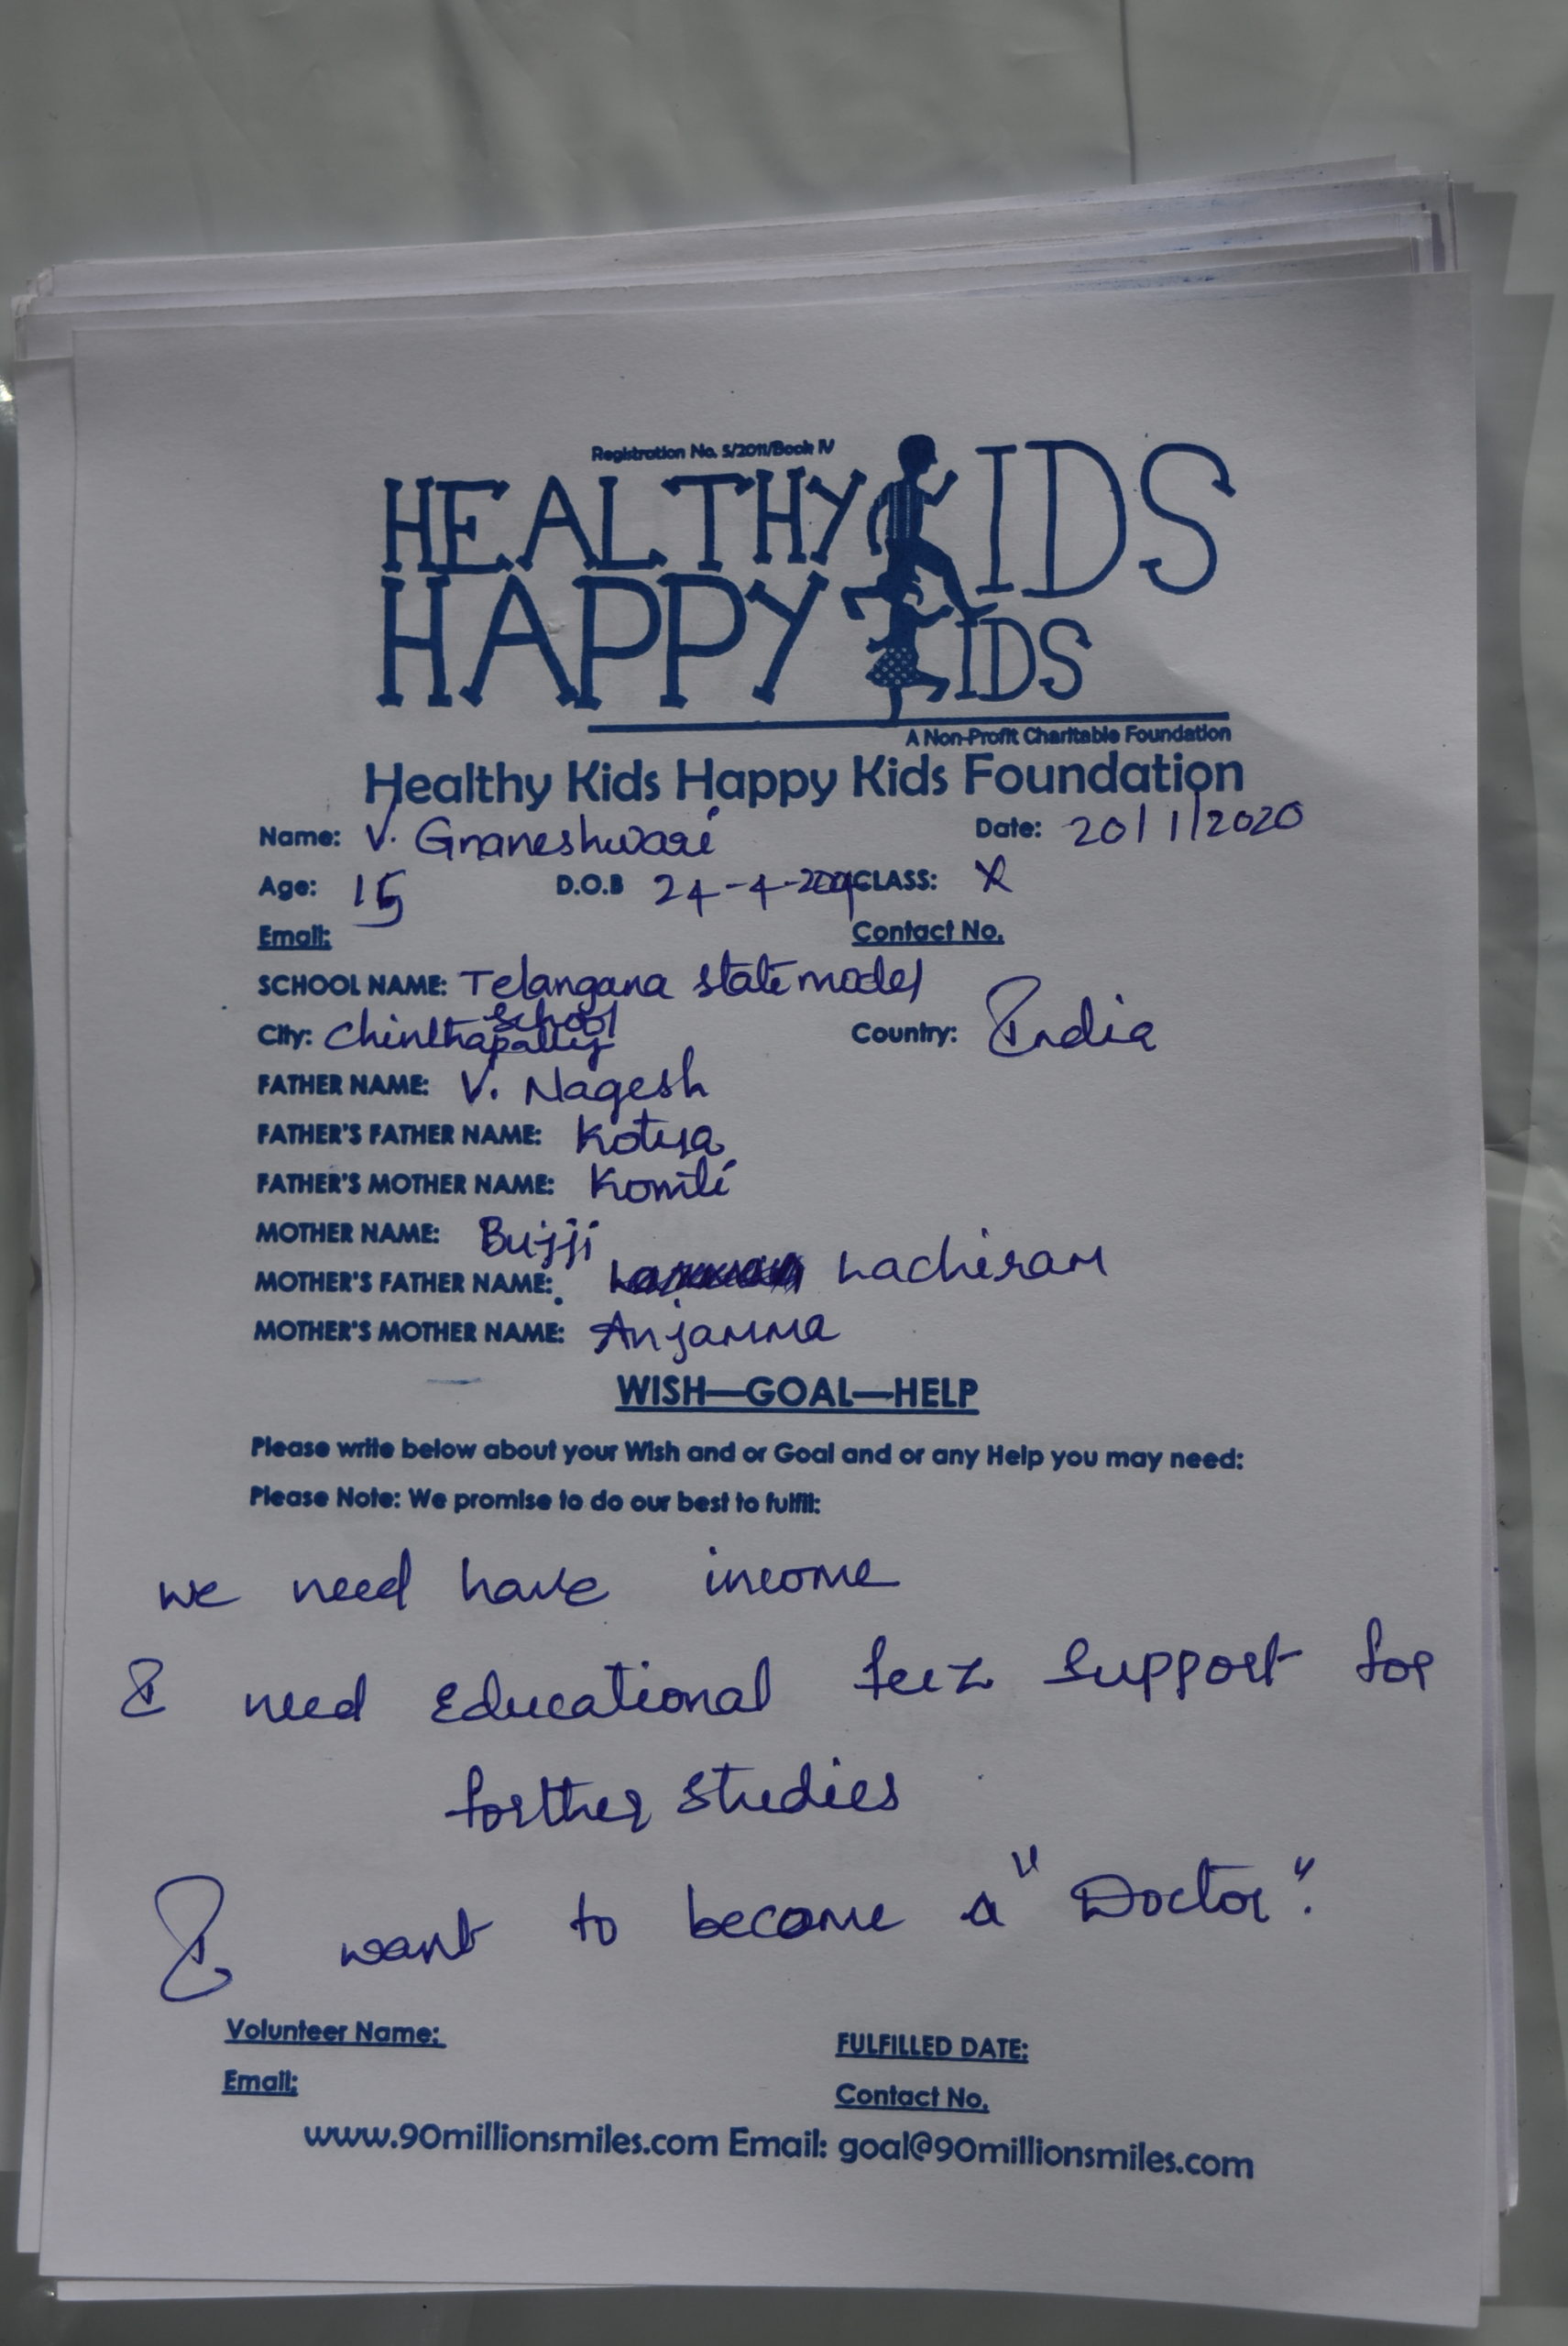 Registration No. 5/2011/Book IV
HEALTHY KIDS
HAPPY KIDS
A Non-Profit Charitable Foundation
Healthy Kids Happy Kids Foundation
Name: V. Gnaneshwari Date: 20/1/2020
Age: 15 D.O.B 24-4- CLASS: X
Email: Contact No.
SCHOOL NAME: Telangana state model
School
City: Chinthapally Country: India
FATHER NAME: V. Nagesh
FATHER'S FATHER NAME: Kotya
FATHER'S MOTHER NAME: Komti
MOTHER NAME: Bujji
MOTHER'S FATHER NAME: Lachiram
MOTHER'S MOTHER NAME: Anjamma
WISH—GOAL—HELP
Please write below about your Wish and or Goal and or any Help you may need:
Please Note: We promise to do our best to fulfil:
we need have income
I need Educational feez support for
forther studies
I want to become a "Doctor".
Volunteer Name: FULFILLED DATE:
Email: Contact No.
www.90millionsmiles.com Email: goal@90millionsmiles.com